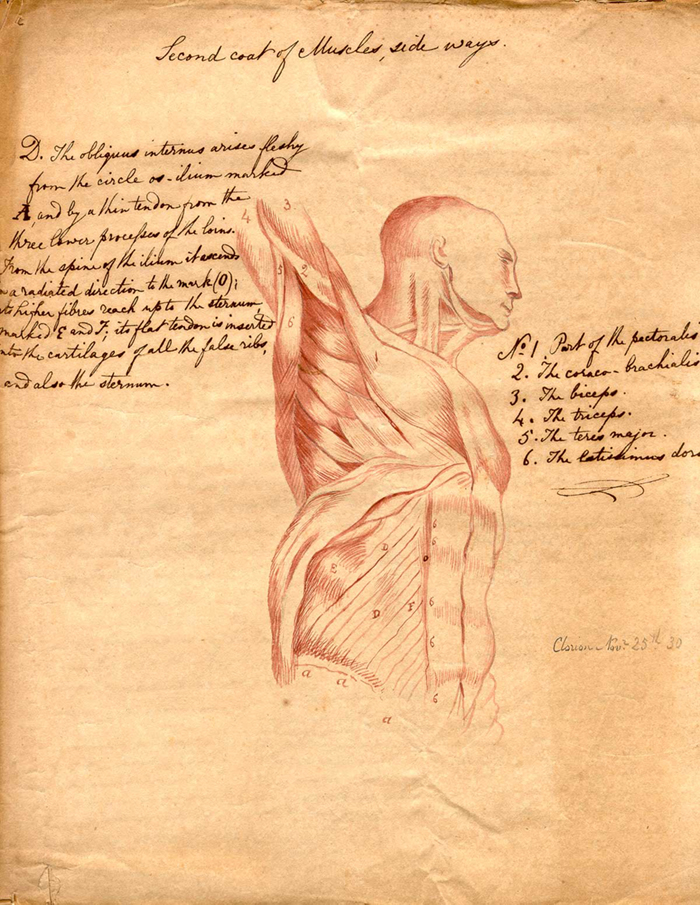 Second coat of Muscles, side ways.
D. The obliquus internus arises fleshy
from the circle os-ilium marked
A, and by a thin tendon from the
three lower processes of the loins.
From the spine of the ilium it ascends
in a radiated direction to the mark (O);
its higher fibres reach up to the sternum,
marked E and F; its flat tendon is inserted
into the cartilages of all the false ribs,
and also the sternum.
No. 1. Part of the pactoralis
2. The coraco-brachialis
3. The biceps.
4. The triceps.
5. The teres major.
6. The latissimus dors
25th 30
4
3.
5
2
6
1
D
6
6
o
E
D
F
6
6
a
a
6
a